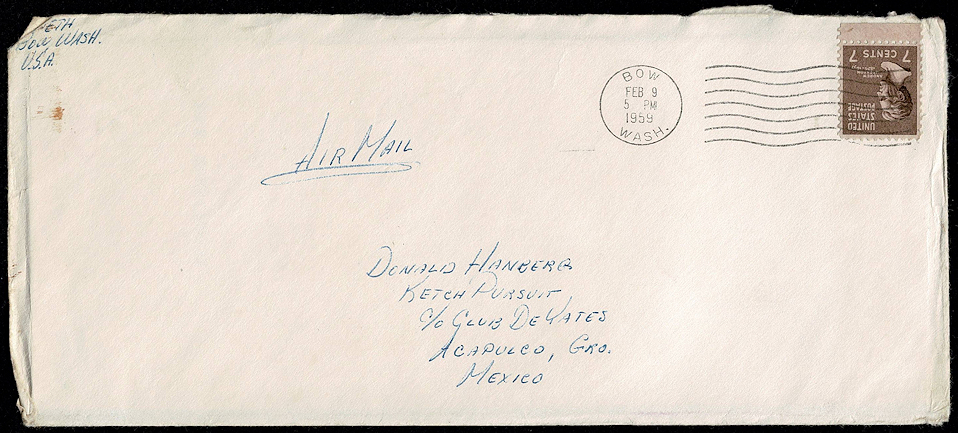 ETH
BOW WASH.
U.S.A.
BOW
FEB 9
5 PM
1959
WASH.
7 CENTS 7
UNITED
STATES
POSTAGE
AIR MAIL
DONALD HANBERG
KETCH PURSUIT,
C/O CLUB DE YATES
ACAPULCO, GRO.
MEXICO